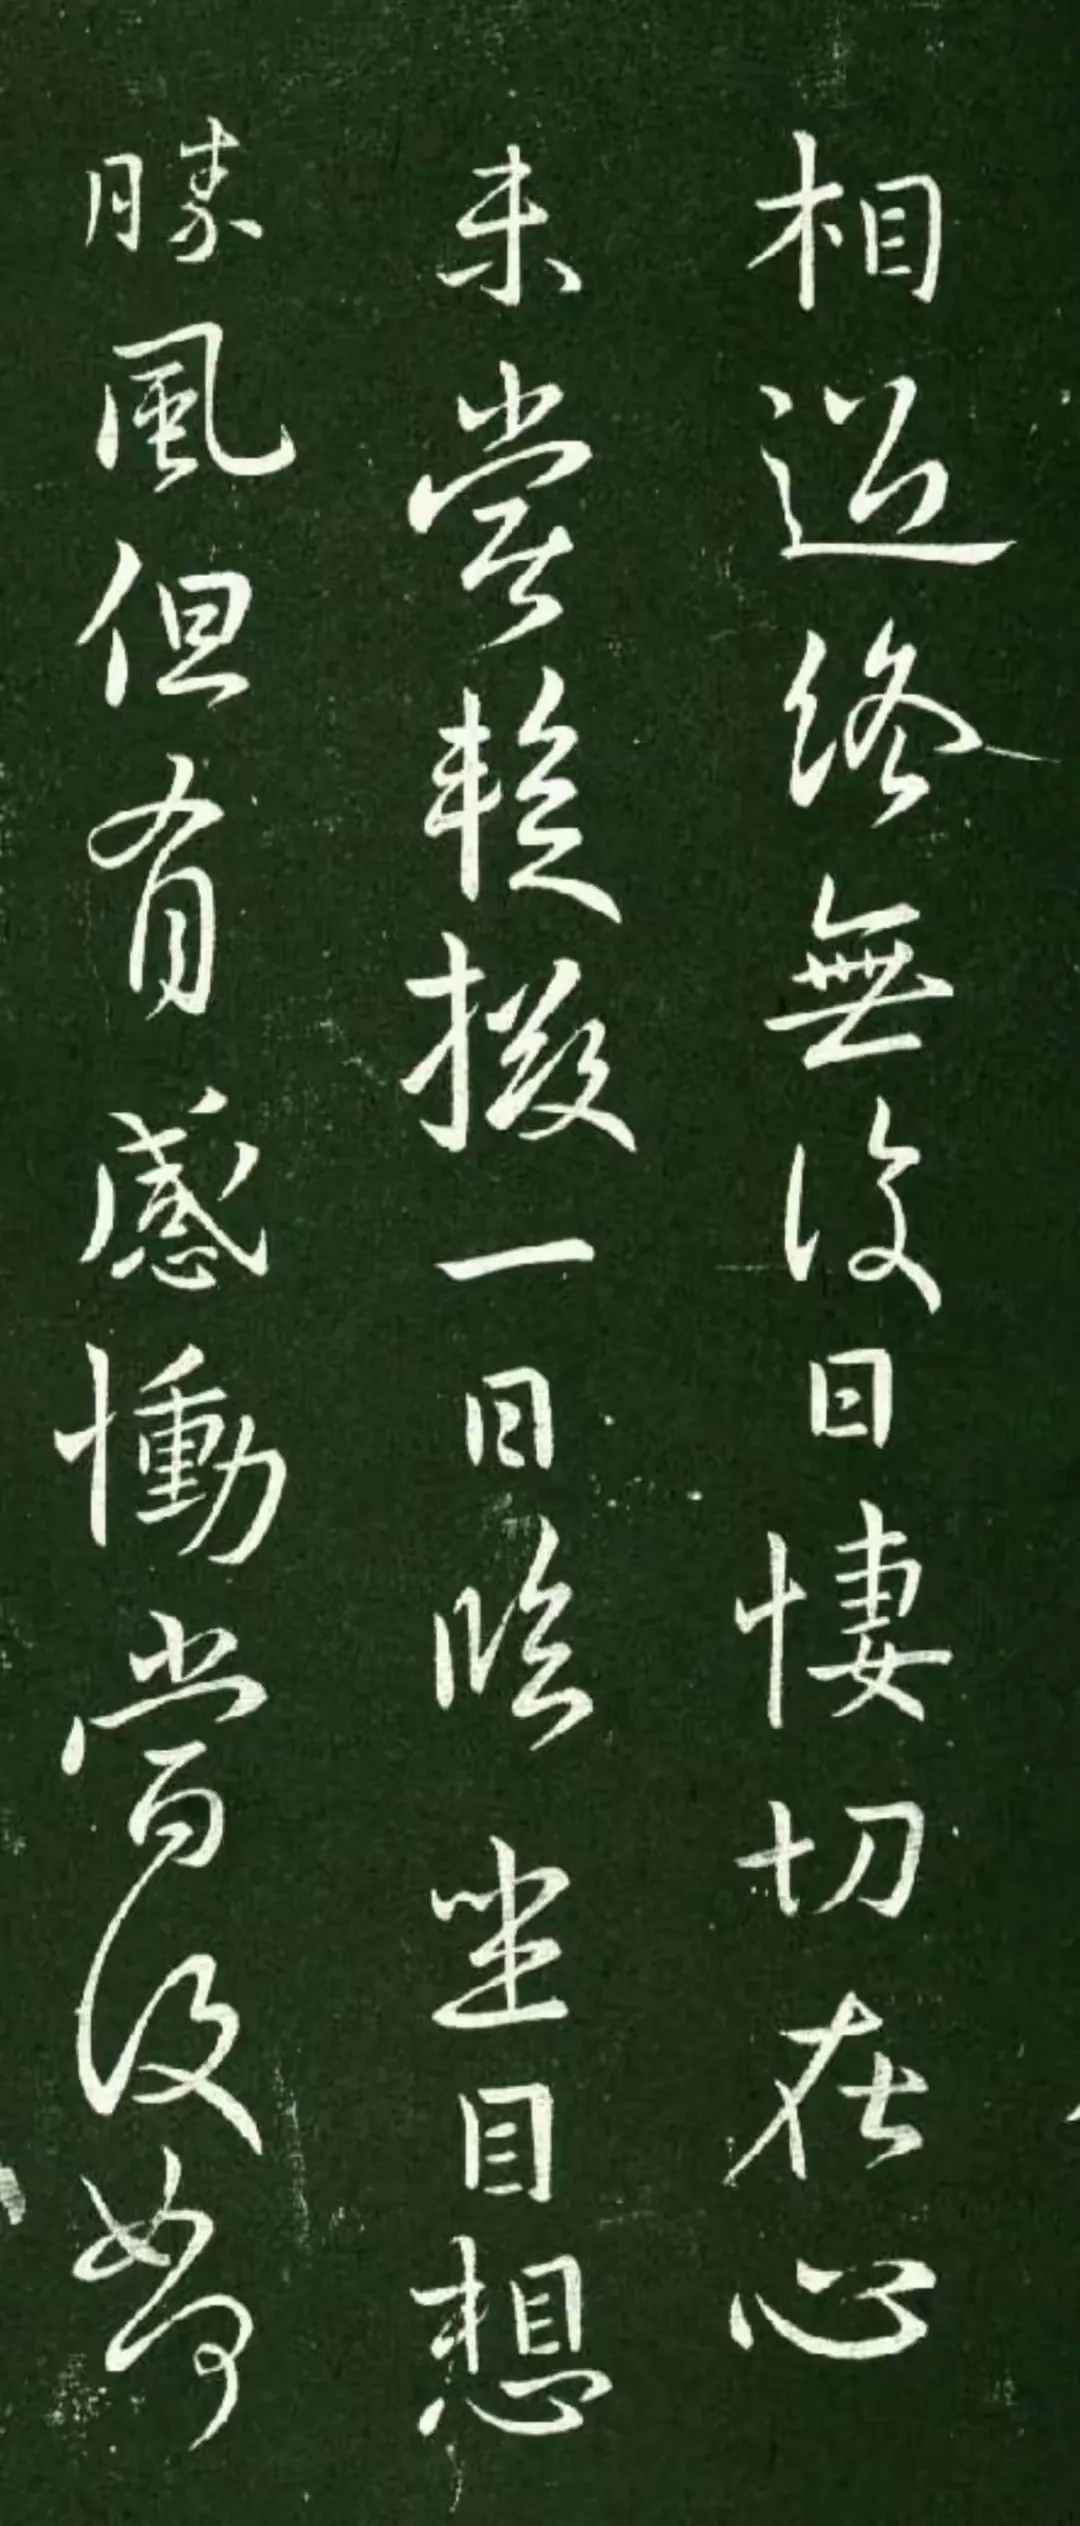 相過終無復日悽切在心
未嘗暫撥一日臨坐目想
勝風但有感慟當復如何